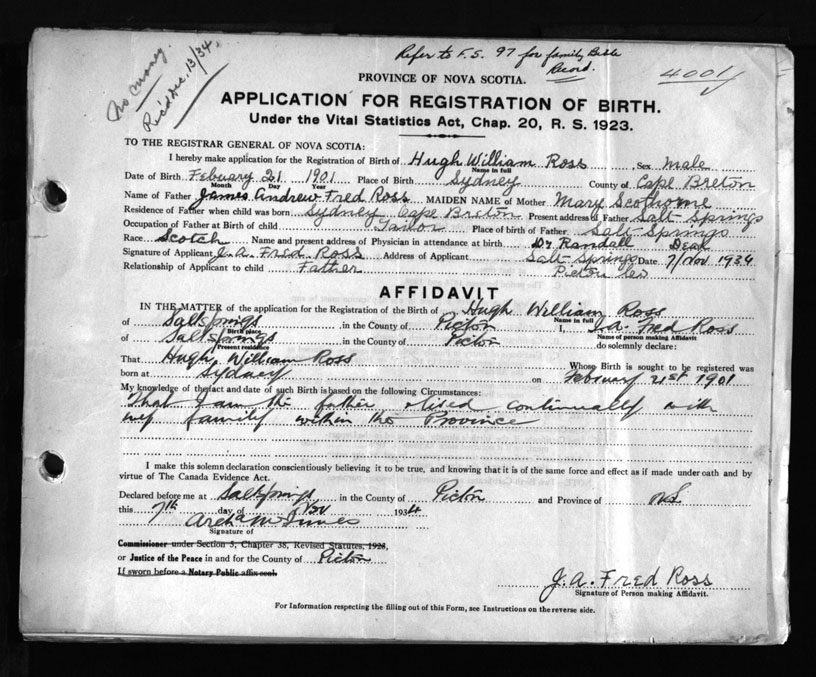 No money.
Rec'd Dec. 13/34.
Refer to F.S. 97 for family Bible
Record.
4001
PROVINCE OF NOVA SCOTIA.
APPLICATION FOR REGISTRATION OF BIRTH.
Under the Vital Statistics Act, Chap. 20, R. S. 1923.
TO THE REGISTRAR GENERAL OF NOVA SCOTIA:
I hereby make application for the Registration of Birth of Hugh William Ross Sex male
Name in full
Date of Birth Febuary 21 1901 Place of Birth Sydney County of Cape Breton
Month Day Year
Name of Father James Andrew Fred Ross MAIDEN NAME of Mother Mary Scothorne
Residence of Father when child was born Sydney Cape Breton Present address of Father Salt Springs
Occupation of Father at Birth of child Tailor Place of birth of Father Salt Springs
Race Scotch Name and present address of Physician in attendance at birth Dr Randall Dead
Signature of Applicant J. A. Fred Ross Address of Applicant Salt Springs Date 7/Nov 1934
Relationship of Applicant to child Father Pictou Co
AFFIDAVIT
IN THE MATTER of the application for the Registration of the Birth of Hugh William Ross
Name in full
of Saltsprings in the County of Pictou I, J. A. Fred Ross
Birth place
Name of person making Affidavit
of Saltsprings in the County of Pictou do solemnly declare:
Present residence
That Hugh William Ross Whose Birth is sought to be registered was
born at Sydney on February 21st 1901
My knowledge of the fact and date of such Birth is based on the following Circumstances:
That I am the father & lived continually with
my family within the Province
I make this solemn declaration conscientiously believing it to be true, and knowing that it is of the same force and effect as if made under oath and by
virtue of The Canada Evidence Act.
Declared before me at Saltsprings in the County of Pictou and Province of N.S.
this 7th day of Nov 1934
Signature of
Commissioner under Section 5, Chapter 38, Revised Statutes, 1923,
or Justice of the Peace in and for the County of Pictou
If sworn before a Notary Public affix seal.
J. A. Fred Ross
Signature of Person making Affidavit.
For Information respecting the filling out of this Form, see Instructions on the reverse side.